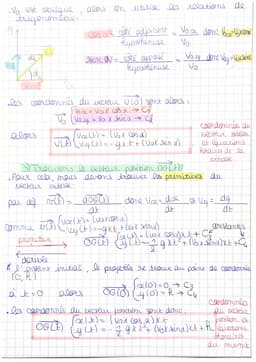 V₀ est oblique, alors on utilise les relations de
trigonométrie.
cos α = côté adjacent / hypothénuse = V₀x / V₀ donc V₀x = V₀ cos α
sin α = côté opposé / hypothénuse = V₀y / V₀ donc V₀y = V₀ sin α
Les coordonnées du vecteur V(0) sont alors :
V₀ { V₀x = V₀ × cos α → C₁
V₀y = V₀ × sin α → C₂
alors
V(t) { Vx(t) = (V₀ × cos α)
Vy(t) = -g × t + (V₀ × sin α)
coordonnées du
vecteur vitesse
et équations
horaires de la
vitesse
3) Trouvons le vecteur position OG(t)
Pour cela, nous devons trouver les primitives du
vecteur vitesse
par déf v(t) = dOG(t) / dt donc Vx = dx / dt et Vy = dy / dt
comme v(t) { Vx(t) = (V₀ × cos α)
Vy(t) = -g × t + (V₀ × sin α)
constantes
primitive
OG(t) { x(t) = (V₀ × cos α) × t + C₃
y(t) = -½ g × t² + (V₀ × sin α) × t + C₄
dérivée
À l'instant initial, le projectile se trouve au point de coordonnées
(0, R)
à t = 0 alors OG(0) { x(0) = 0 → C₃
y(0) = R → C₄
Les coordonnées du vecteur position sont donc :
OG(t) { x(t) = (V₀ × cos α) × t
y(t) = -½ g × t² + (V₀ × sin α) × t + R
coordonnées
du vecteur
position et
équations
horaires
du mouvt